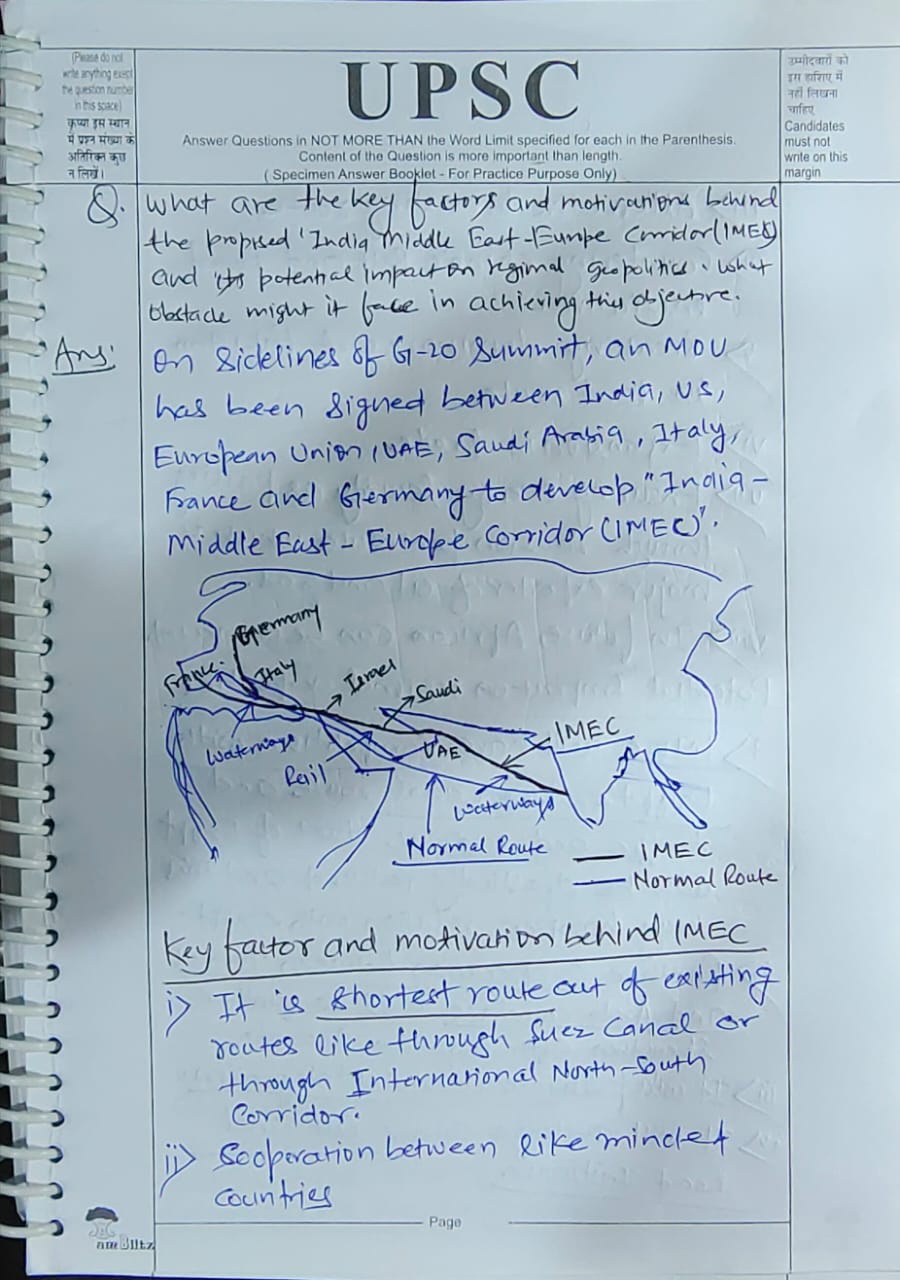 (Please do not
write anything exept
the question number
in this space)
कृप्या इस स्थान
में प्रश्न संख्या के
अतिरिक्त कुछ
न लिखें।
UPSC
Answer Questions in NOT MORE THAN the Word Limit specified for each in the Parenthesis.
Content of the Question is more important than length.
( Specimen Answer Booklet - For Practice Purpose Only)
उम्मीदवारों को
इस हाशिए में
नहीं लिखना
चाहिए
Candidates
must not
write on this
margin
Q. What are the key factors and motivations behind
the proposed 'India Middle East-Europe Corridor (IMEC)
and its potential impact on regional geopolitics. what
obstacle might it face in achieving this objective.
Ans: On Sidelines of G-20 Summit, an MOU
has been signed between India, US,
European Union, UAE, Saudi Arabia, Italy,
France and Germany to develop "India-
Middle East - Europe Corridor (IMEC)".
Germany
France
Italy
Israel
Saudi
IMEC
Waterways
UAE
Rail
Waterways
Normal Route
IMEC
Normal Route
Key factor and motivation behind IMEC
i) It is shortest route out of existing
routes like through Suez Canal or
through International North-South
Corridor.
ii) Sooperation between like minded
countries
Page